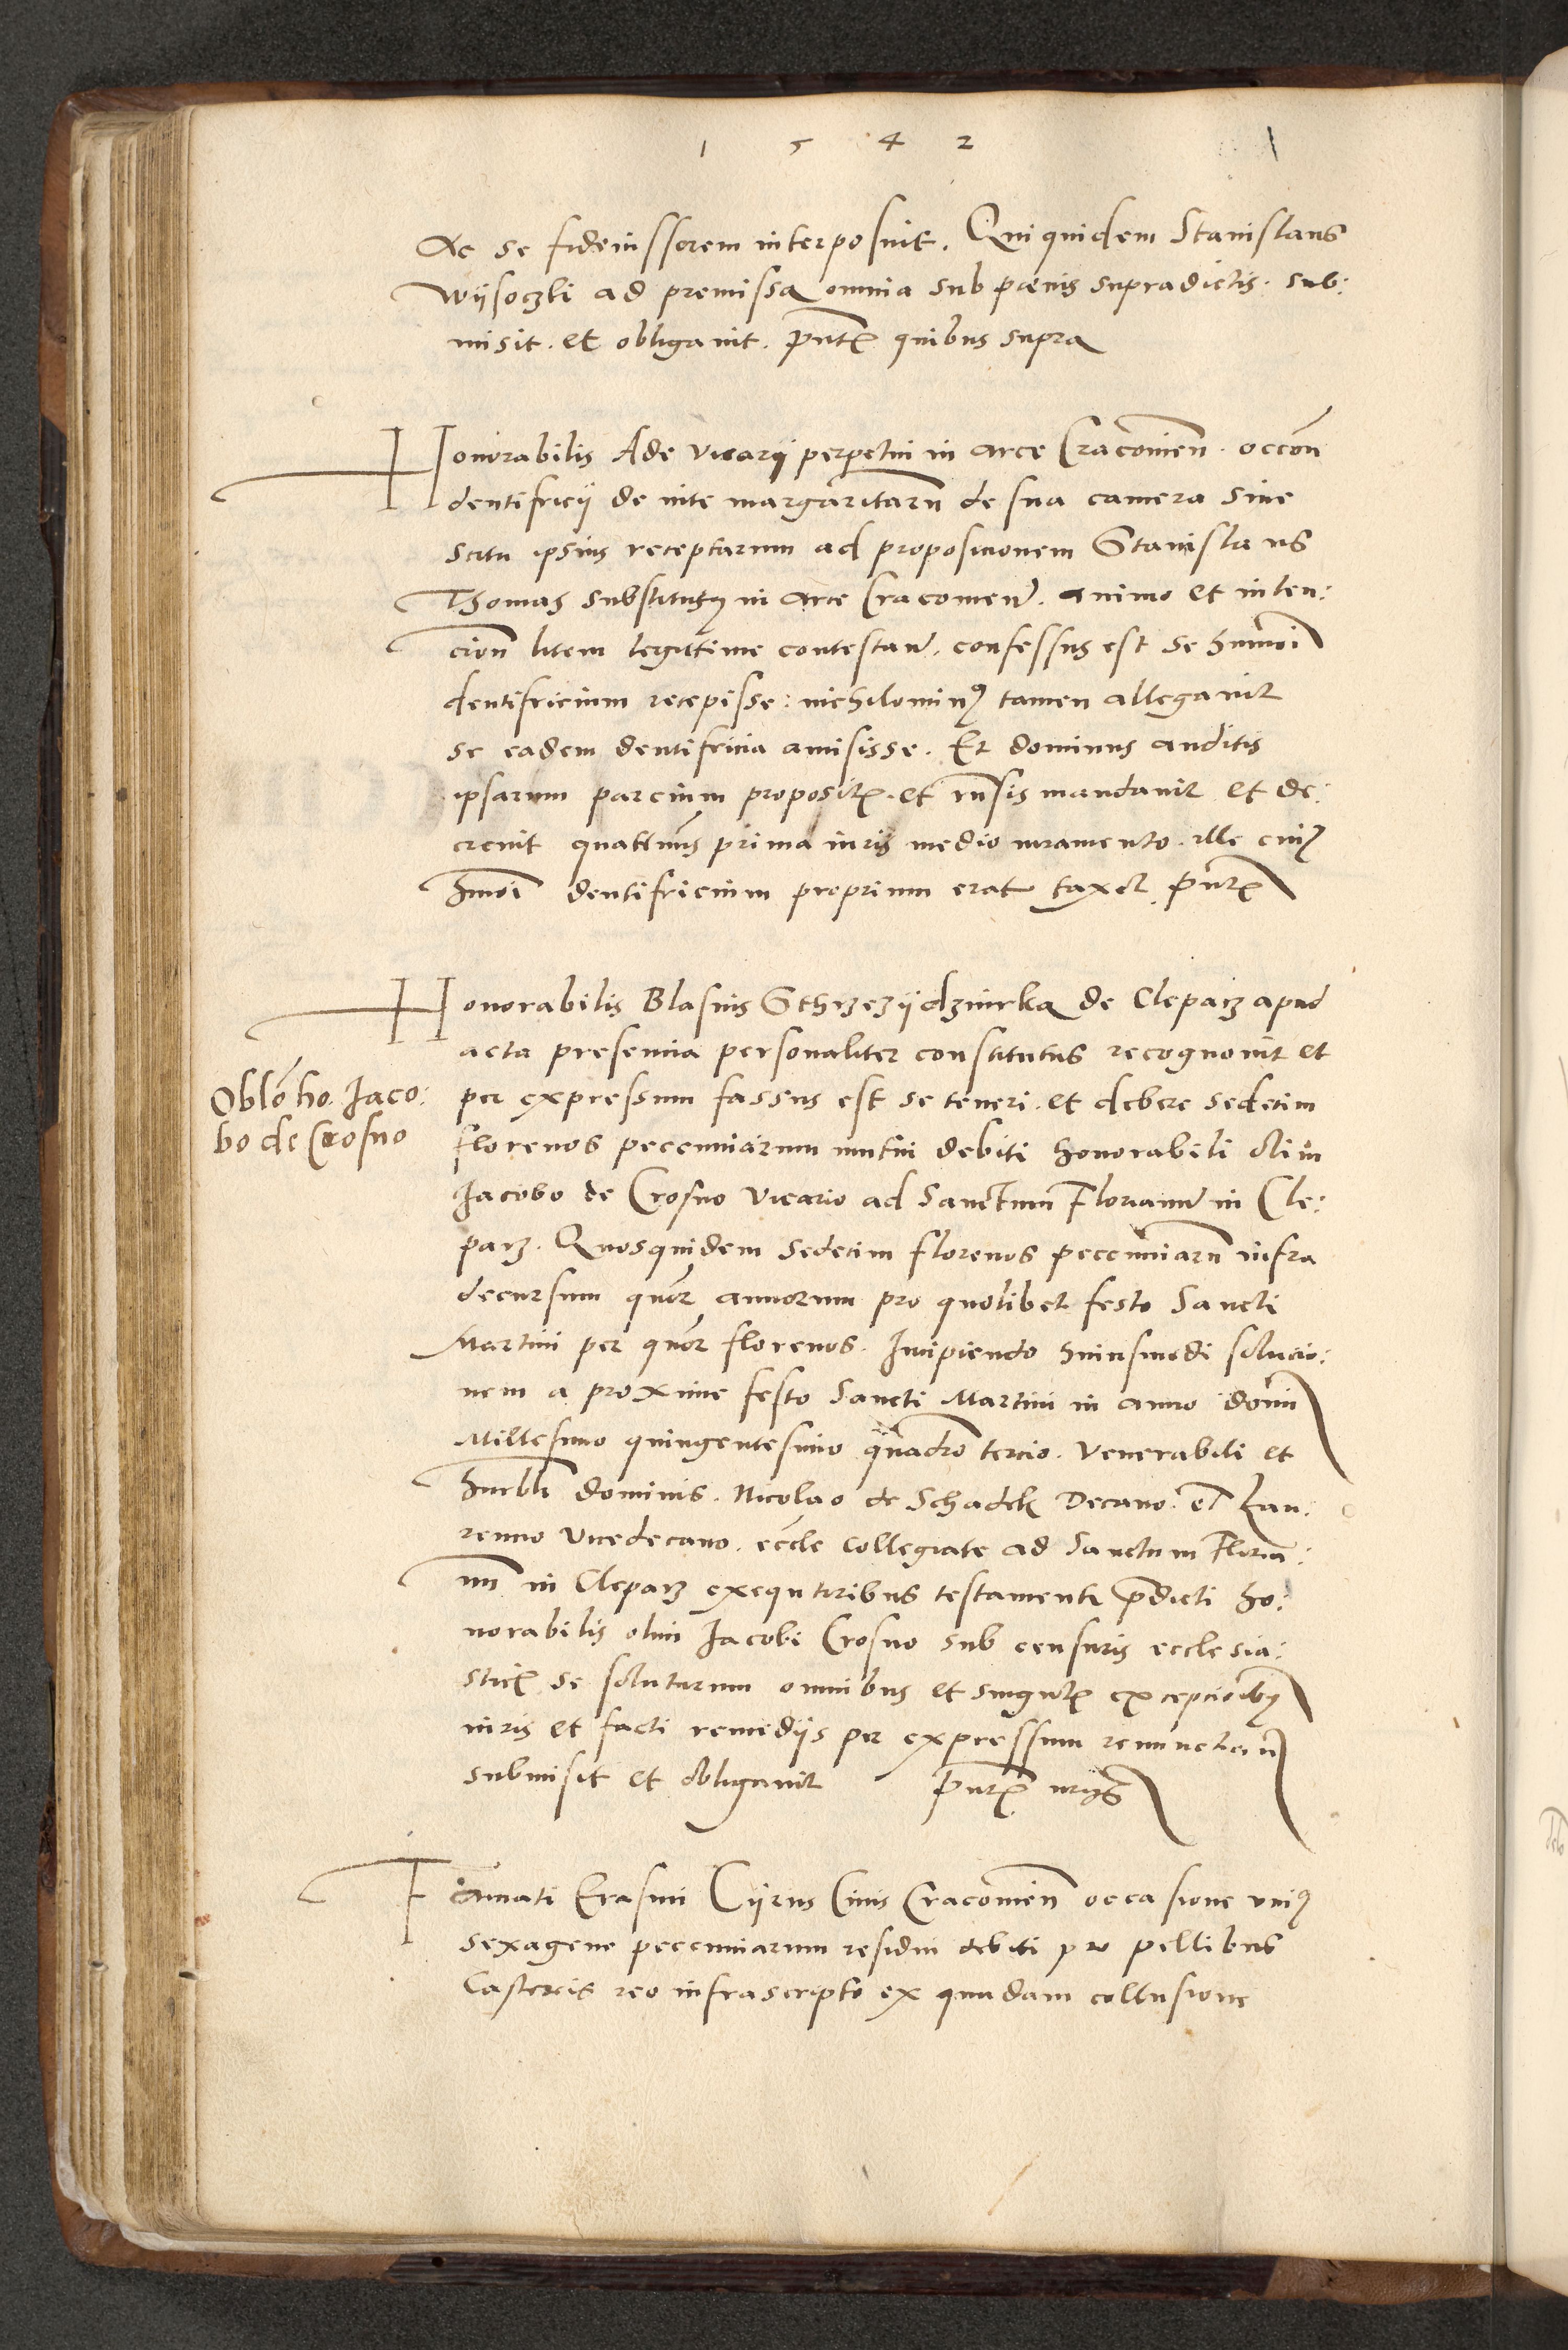 1 5 4 2
Ac se fideiussorem interposuit. Qui quidem Stanislaus
Wÿsoczki ad premissa omnia sub poenis supradictis. sub:
misit. et obligauit. Pntꝭ quibus supra
Honorabilis Ade vicarÿ perpetui in arce Cracouien̄. occōn̄
dentifricÿ de vite margaritarū de sua camera sine
scitu ipsius receptarum ad propositionem Stanislaus
Thomas substitutꝯ in arce Cracouien̄. animo et inten:
cioñ litem legittime contestañ. confessus est se hmōi
dentifricium recepisse: nichilominꝰ tamen allegauit
se eadem dentifricia amisisse. Et dominus auditis
ipsarum parcium propositꝭ. et rn̄sis mandauit et de:
creuit quattin̄s prima iuris medio iuramento. ille cuiꝰ
hmōi dentifricium proprium erat taxet. Pn̄tꝭ
Honorabilis Blasius Sthrzezÿdzuirka de Cleparz apud
acta presencia personaliter constitutus recognouit et
per expressum fassus est se teneri. et debere sedecim
florenos pecenniarum mutui debiti honorabili olim
Iacobo de Crosno vicario ad Sanctum Florianū in Cle:
parz. Quosquidem sedecim florenos pecenniarū infra
decursum quōr annorum pro quolibet festo Sancti
Martini per quōr florenos. Incipiendo huiusmodi solucio:
nem a proxime festo Sancti Martini in anno domi
Millesimo quingentesimo quadrō tercio. Venerabili et
hnrbli dominis. Nicolao de Schadek Decano. et Lau:
rencio vicedecano. eccle collegiate ad Sanctum Floria:
nū in Cleparz exequtoribus testamenti p̄dicti ho:
norabilis olim Iacobi Crosno sub censuris ecclesia:
sticꝭ se soluturum omnibus et singulꝭ excepcionibꝯ
iuris et facti remedÿs per expressum renunctiañ
submisit et obligauit Pn̄tꝭ
Oblō ho. Iaco:
bo de Crosno
Famati Erasmi Cÿrus Ciuis Cracouien̄ occasione vniꝰ
sexagene pecenniarum residui debiti pro pellibus
Castoris reo infrascripto ex quadam collusione